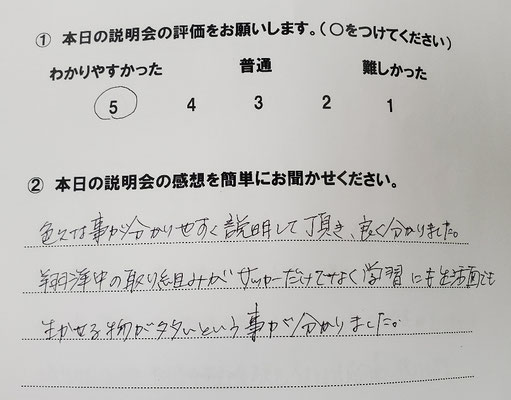 ① 本日の説明会の評価をお願いします。(○をつけてください)
わかりやすかった 普通 難しかった
5 4 3 2 1
② 本日の説明会の感想を簡単にお聞かせください。
色々な事が分かりやすく説明して頂き、良く分かりました。
翔洋中の取り組みがサッカーだけでなく学習にも生活面でも
生かせる物が多いという事が分かりました。